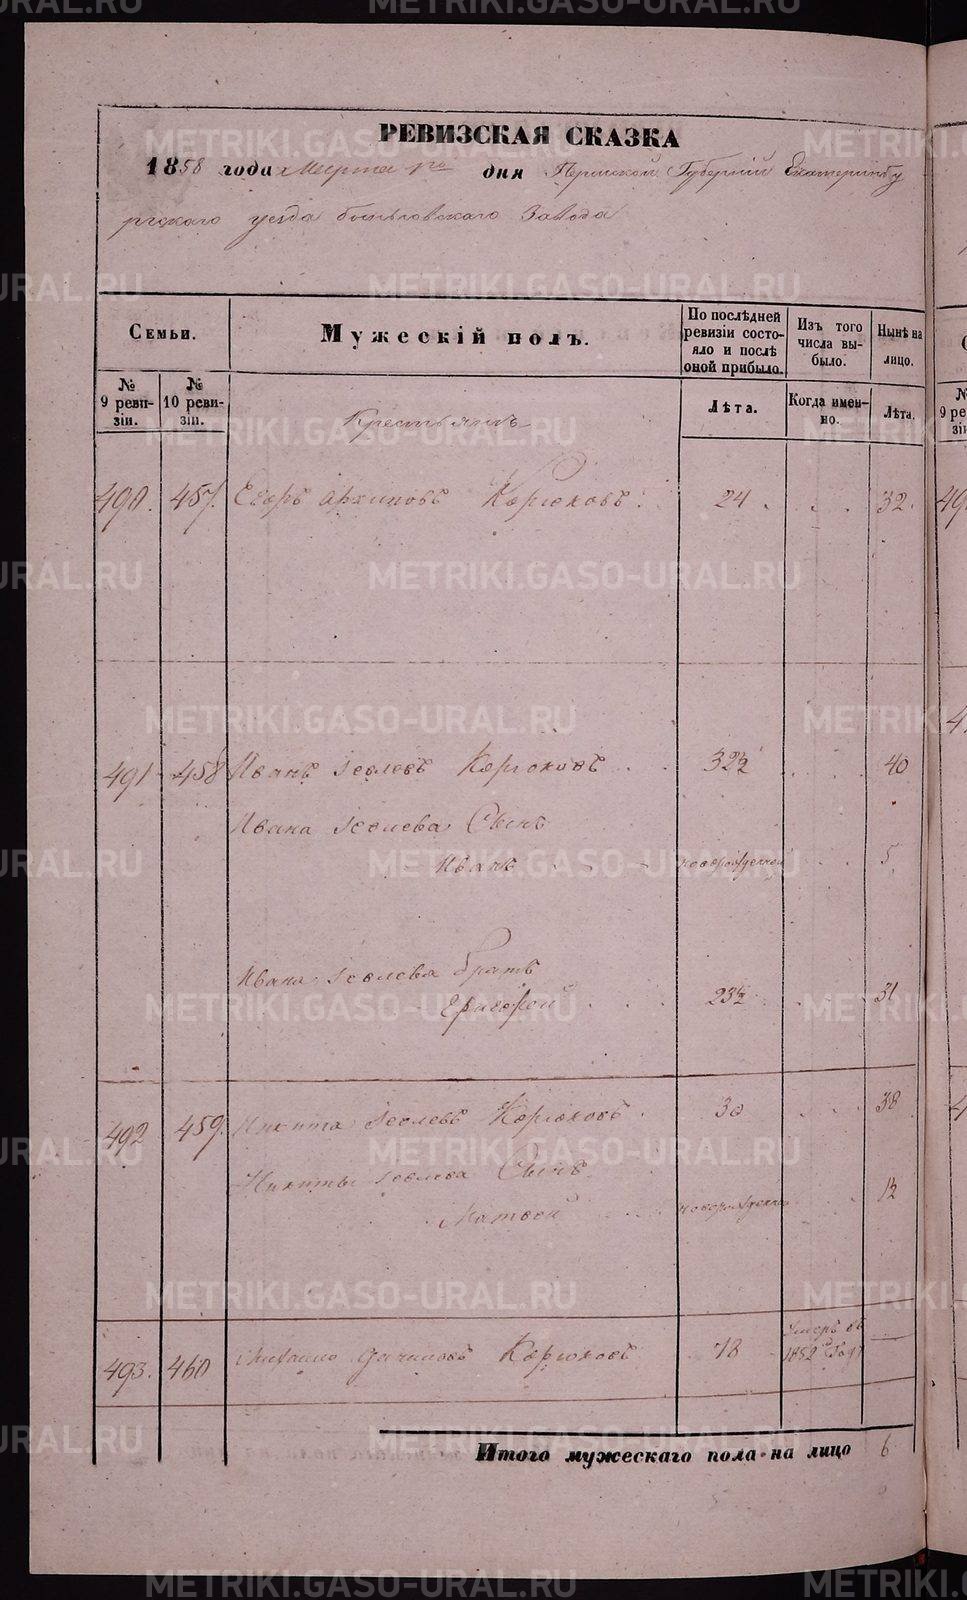 РЕВИЗСКАЯ СКАЗКА
1858 года Марта дня Пермской Губерніи Екатеринбу
ргскаго уезда Завода
Семьи.
Мужескій полъ.
По послѣдней ревизіи состояло и послѣ оной прибыло.
Изъ того числа выбыло.
Нынѣ на лицо.
№ 9 ревизіи.
№ 10 ревизіи.
Лѣта.
Когда именно.
Лѣта.
Крестьянъ
490. 457. Егоръ Архиповъ Корюковъ. 24 32.
491 458 Иванъ Іевлевъ Корюковъ 32½ 40
Ивана Іевлева Сынъ
Иванъ новорожденной 5
Ивана Іевлева братъ
Григорей 23½ 31
492 459. Никита Іевлевъ Корюковъ. 30 38
Никиты Іевлева Сынъ
Матвей новорожденной 12
493. 460 Михайло Корюковъ 78 Умеръ въ 1852 Году
Итого мужескаго пола на лицо 6
METRIKI.GASO-URAL.RU